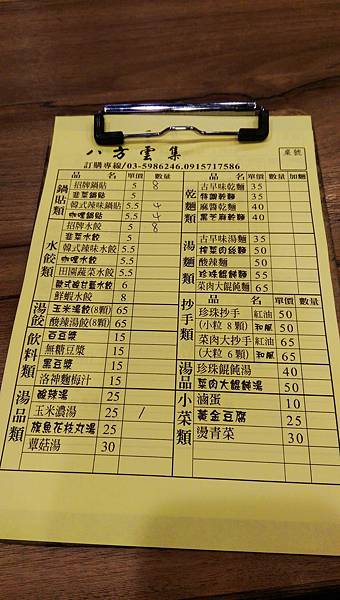 八方雲集
訂購專線/03-5986246.0915717586
桌號
品名 單價 數量
鍋貼類
招牌鍋貼 5 8
韭菜鍋貼 5
韓式辣味鍋貼 5.5 4
咖哩鍋貼 5.5 4
水餃類
招牌水餃 5 8
韭菜水餃 5
韓式辣味水餃 5.5
咖哩水餃 5.5
田園蔬菜水餃 5.5
6
鮮蝦水餃 8
湯餃
玉米湯餃(8顆) 65
酸辣湯餃(8顆) 65
飲料類
白豆漿 15
無糖豆漿 15
黑豆漿 15
洛神麴梅汁 15
湯品類
酸辣湯 25
玉米濃湯 25 /
旗魚花枝丸湯 25
蕈菇湯 30
品名 單價 數量 加麵
乾麵類
古早味乾麵 35
特製乾麵 35
麻醬乾麵 40
黑芝麻乾麵 40
湯麵類
古早味湯麵 35
榨菜肉絲麵 50
酸辣麵 50
珍珠餛飩麵 55
菜肉大餛飩麵 65
品名 單價 數量
抄手類
珍珠抄手 紅油 50
(小粒 8顆) 和風 50
菜肉大抄手 紅油 65
(大粒 6顆) 和風 65
湯品
珍珠餛飩湯 40
菜肉大餛飩湯 50
小菜類
滷蛋 10
黃金豆腐 25
燙青菜 30